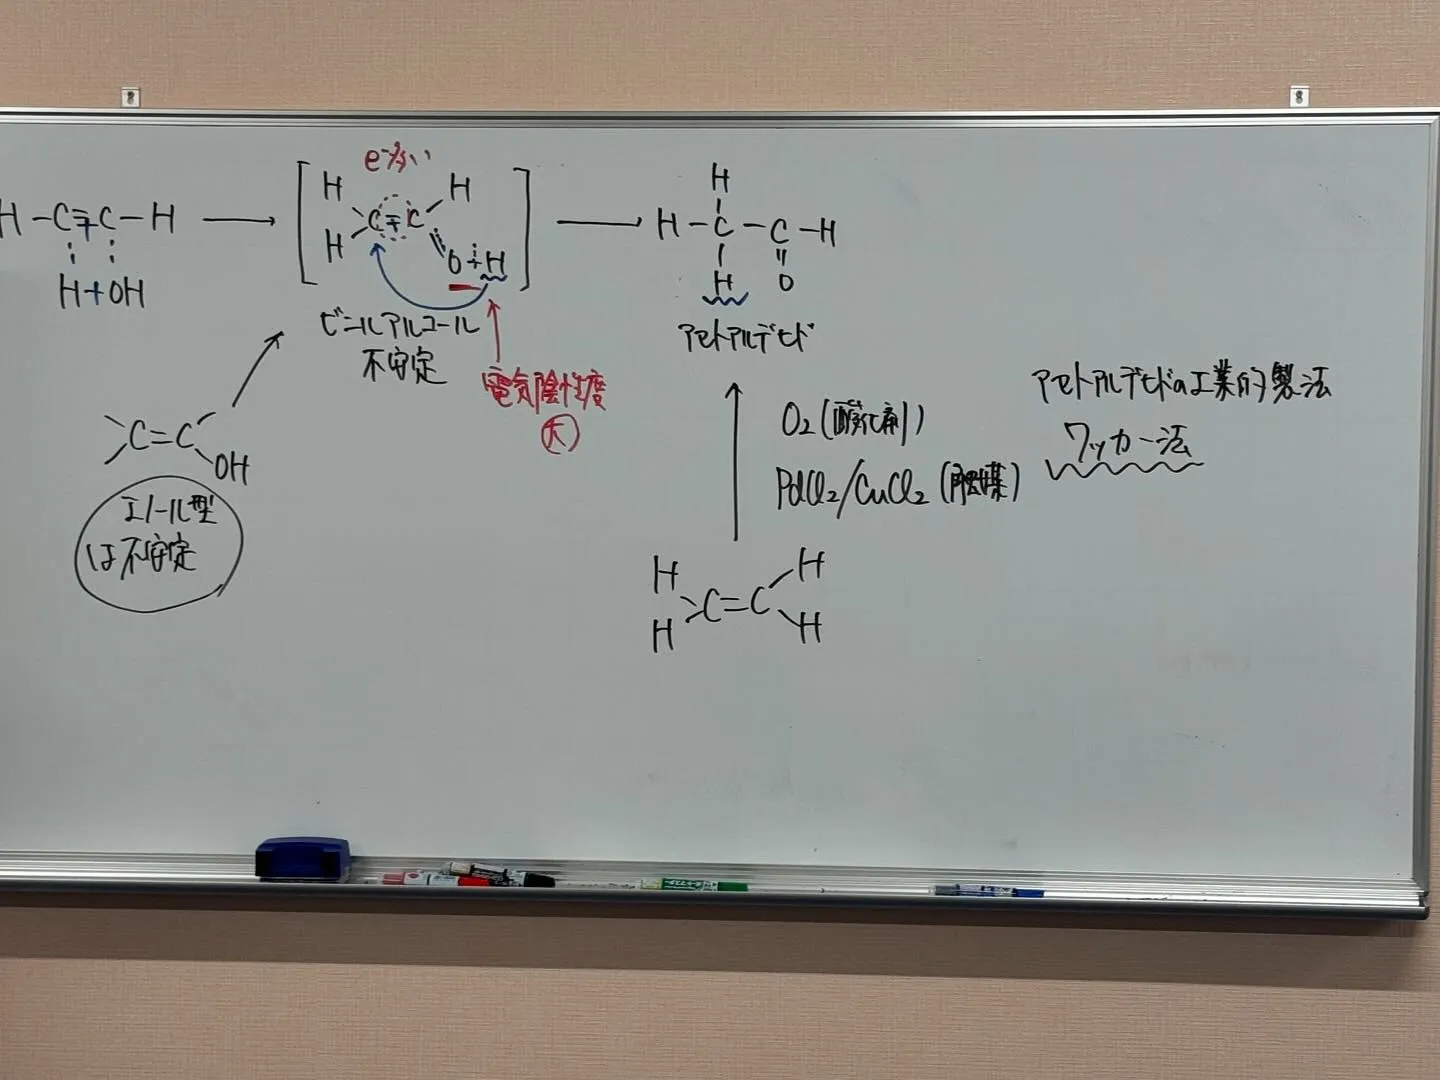 H-C≡C-H
H+OH
e⁻多い
H H
C=C
H O+H
ビニルアルコール
不安定
電気陰性度
大
C=C
OH
エノール型
は不安定
H
H-C-C-H
H O
アセトアルデヒド
O₂(酸化剤)
PdCl₂/CuCl₂(触媒)
H H
C=C
H H
アセトアルデヒドの工業的製法
ワッカー法